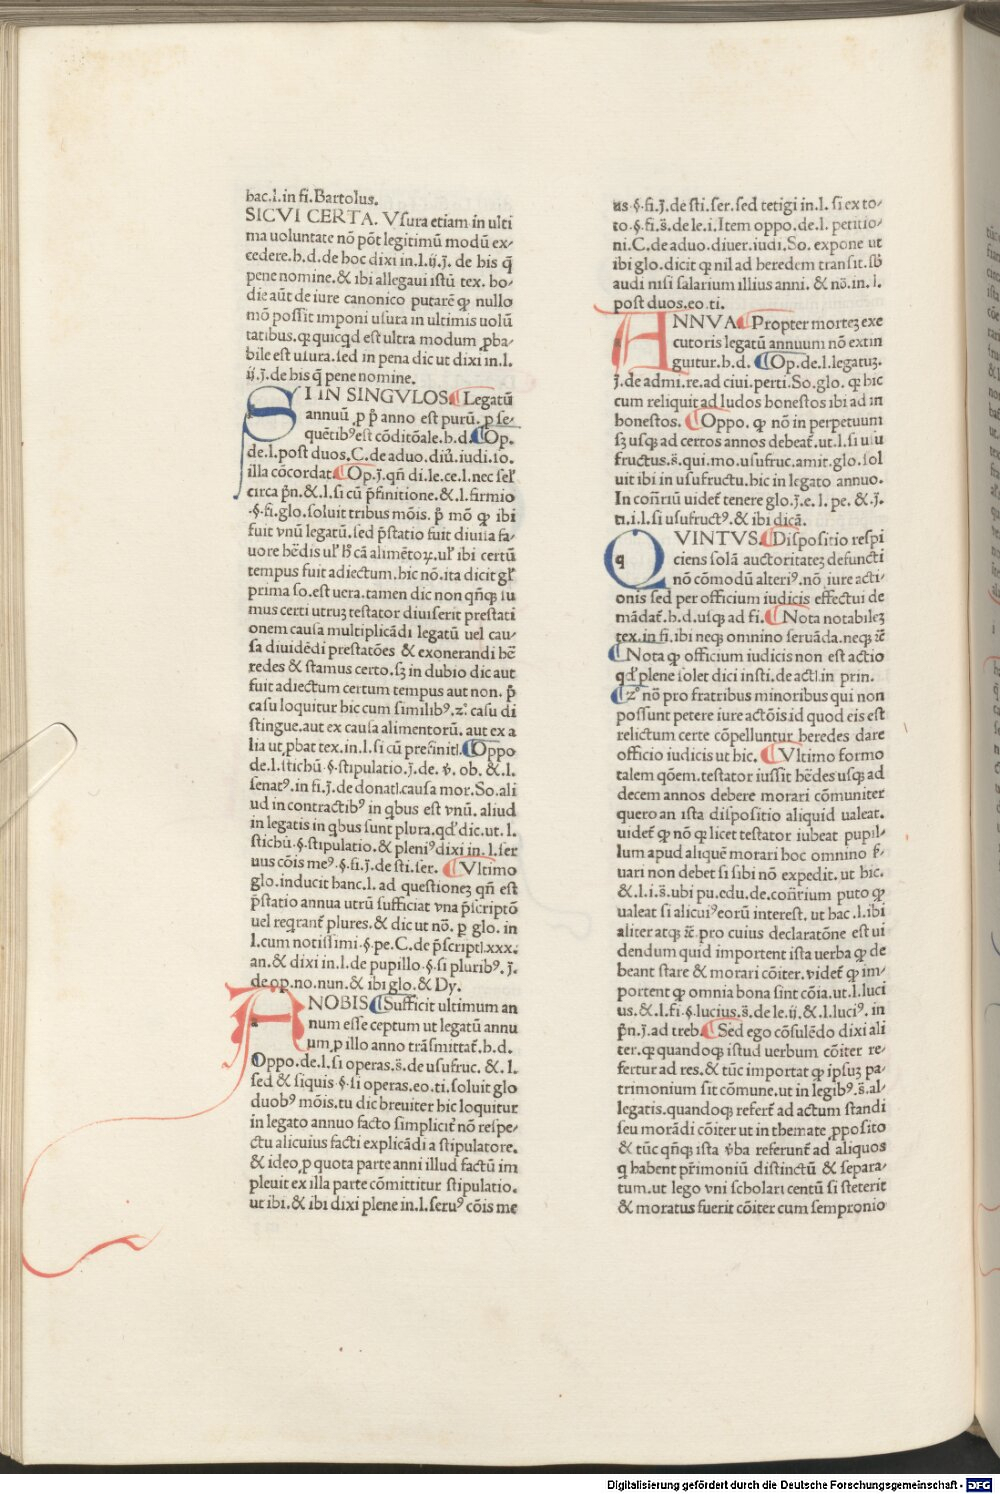 hac.l.in fi.Bartolus.
SICVI CERTA. Vsura etiam in ulti
ma uoluntate nō pōt legitimū modū ex⸗
cedere.h.d.de hoc dixi in.l.ij.ȷ̄. de his q̄
pene nomine.& ibi allegaui istū tex. ho⸗
die aūt de iure canonico putarē ꝙ nullo
mō possit imponi usura in ultimis uolū
tatibus.ꝙ quicqd est ultra modum ꝓba⸗
bile est usura.sed in pena dic ut dixi in.l.
ij.ȷ̄.de his q̄ pene nomine.
SI IN SINGVLOS. Legatū
annuū ꝓ p̄ anno est purū. ꝓ se⸗
quētibꝰ est cōditōale.h.d. Op.
de.l.post duos.C.de aduo.diū. iudi.so.
illa cōcordat. Op.ȷ̄.qn̄ di.le.ce.l.nec sel̄
circa p̄n.& .l.si cū p̄finitione.& .l.firmio
.§.fi.glo.soluit tribus mōis. p̄ mō ꝙ ibi
fuit vnū legatū.sed p̄statio fuit diuisa fa⸗
uore hēdis ul̄ ħ cā alimētoꝝ.ul̄ ibi certū
tempus fuit adiectum.hic nō.ita dicit gl̄
prima so.est uera.tamen dic non qn̄qꝫ su
mus certi utrūꝫ testator diuiserit prestati
onem causa multiplicādi legatū uel cau⸗
sa diuidēdi prestatōes & exonerandi hē
redes & stamus certo.sꝫ in dubio dic aut
fuit adiectum certum tempus aut non. p̄
casu loquitur hic cum similibꝰ.zͦ. casu di
stingue.aut ex causa alimentorū. aut ex a
lia ut ꝓbat tex.in.l.si cū prefinitl. Oppo
de.l.stichū .§.stipulatio.ȷ̄.de. v̄. ob. & .l.
senatꝰ.in fi.ȷ̄.de donatl.causa mor.So.ali
ud in contractibꝰ in qbus est vnū. aliud
in legatis in qbus sunt plura.qd̄ dic.ut. l.
stichū.§.stipulatio.& pleniꝰ dixi in.l.ser
uus cōis meꝰ.§.fi.ȷ̄.de sti.ser. Vltimo
glo.inducit hanc.l. ad questionez qn̄ est
p̄statio annua utrū sufficiat vna p̄scriptō
uel reqrant̄ plures.& dic ut nō. ꝑ glo. in
l.cum notissimi.§.pe.C.de p̄scriptl.xxx.
an.& dixi in.l.de pupillo.§.si pluribꝰ. ȷ̄.
de.op.no.nun.& ibi glo.& Dy.
A NOBIS Sufficit ultimum an
num esse ceptum ut legatū annu
um ꝓ illo anno trāsmittat̄.h.d.
Oppo.de.l.si operas.s̄.de usufruc. & .l.
sed & siquis.§.si operas.eo.ti.soluit glo
duobꝰ mōis.tu dic breuiter hic loquitur
in legato annuo facto simplicit̄ nō respe⸗
ctu alicuius facti explicādi a stipulatore.
& ideo ꝓ quota parte anni illud factū im
pleuit ex illa parte cōmittitur stipulatio.
ut ibi.& ibi dixi plene in.l.seruꝰ cōis me
us.§.fi.ȷ̄.de sti.ser.sed tetigi in.l. si ex to⸗
to.§.fi.s̄.de le.i.Item oppo.de.l. petitio⸗
ni.C.de aduo.diuer.iudi.So. expone ut
ibi glo.dicit ꝙ nil ad heredem transit.sb̄
audi nisi salarium illius anni. & nō.in. l.
post duos.eo.ti.
ANNVA. Propter mortez exe
cutoris legatū annuum nō extin
guitur.h.d. Op.de.l.legatuꝫ.
ȷ̄.de admi.re.ad ciui.perti.So.glo. ꝙ hic
cum reliquit ad ludos honestos ibi ad in
honestos. Oppo. ꝙ nō in perpetuum
sꝫ usqꝫ ad certos annos debeat̄.ut.l.si usu
fructus.s̄.qui.mo.usufruc.amit.glo.sol
uit ibi in usufructu.hic in legato annuo.
In con̄riū uidet̄ tenere glo.ȷ̄.e. l. pe. & .ȷ̄.
ti.i.l.si usufructꝰ.& ibi dicā.
QVINTVS. Dispositio respi
ciens solā auctoritatez defuncti
nō cōmodū alteriꝰ.nō iure acti⸗
onis sed per officium iudicis effectui de
mādat̄.h.d.usqꝫ ad fi. Nota notabileꝫ
tex.in fi.ibi neqꝫ omnino seruāda.neqꝫ ꝛc̄
Nota ꝙ officium iudicis non est actio
qd̄ plene solet dici insti.de actl.in prin.
zͦ nō pro fratribus minoribus qui non
possunt petere iure actōis.id quod eis est
relictum certe cōpelluntur heredes dare
officio iudicis ut hic. Vltimo formo
talem qōem.testator iussit hēdes usqꝫ ad
decem annos debere morari cōmuniter
quero an ista dispositio aliquid ualeat.
uidet̄ ꝙ nō ꝙ licet testator iubeat pupil⸗
lum apud aliquē morari hoc omnino s̄⸗
uari non debet si sibi nō expedit. ut hic.
& .l.i.s̄.ubi pu.edu.de.con̄rium puto ꝙ
ualeat si alicuiꝰ eorū interest. ut hac .l.ibi
aliter atqꝫ ꝛc̄.pro cuius declaratōne est ui
dendum quid importent ista uerba ꝙ de
beant stare & morari cōiter.videt̄ ꝙ im⸗
portent ꝙ omnia bona sint cōia.ut.l.luci
us.& .l.fi.§.lucius.s̄.de le.ij.& .l.luciꝰ. in
p̄n.ȷ̄.ad treb. Sed ego cōsulēdo dixi ali
ter.ꝙ quandoqꝫ istud uerbum cōiter re⸗
fertur ad res.& tūc importat ꝙ ipsuꝫ pa⸗
trimonium sit cōmune.ut in legibꝰ.s̄.al⸗
legatis.quandoqꝫ refert̄ ad actum standi
seu morādi cōiter ut in themate ꝓposito
& tūc qn̄qꝫ ista v̄ba referunt̄ ad aliquos
q habent pr̄imoniū distinctū & separa⸗
tum.ut lego vni scholari centū si steterit
& moratus fuerit cōiter cum sempronio
Digitalisierung gefördert durch die Deutsche Forschungsgemeinschaft - DFG